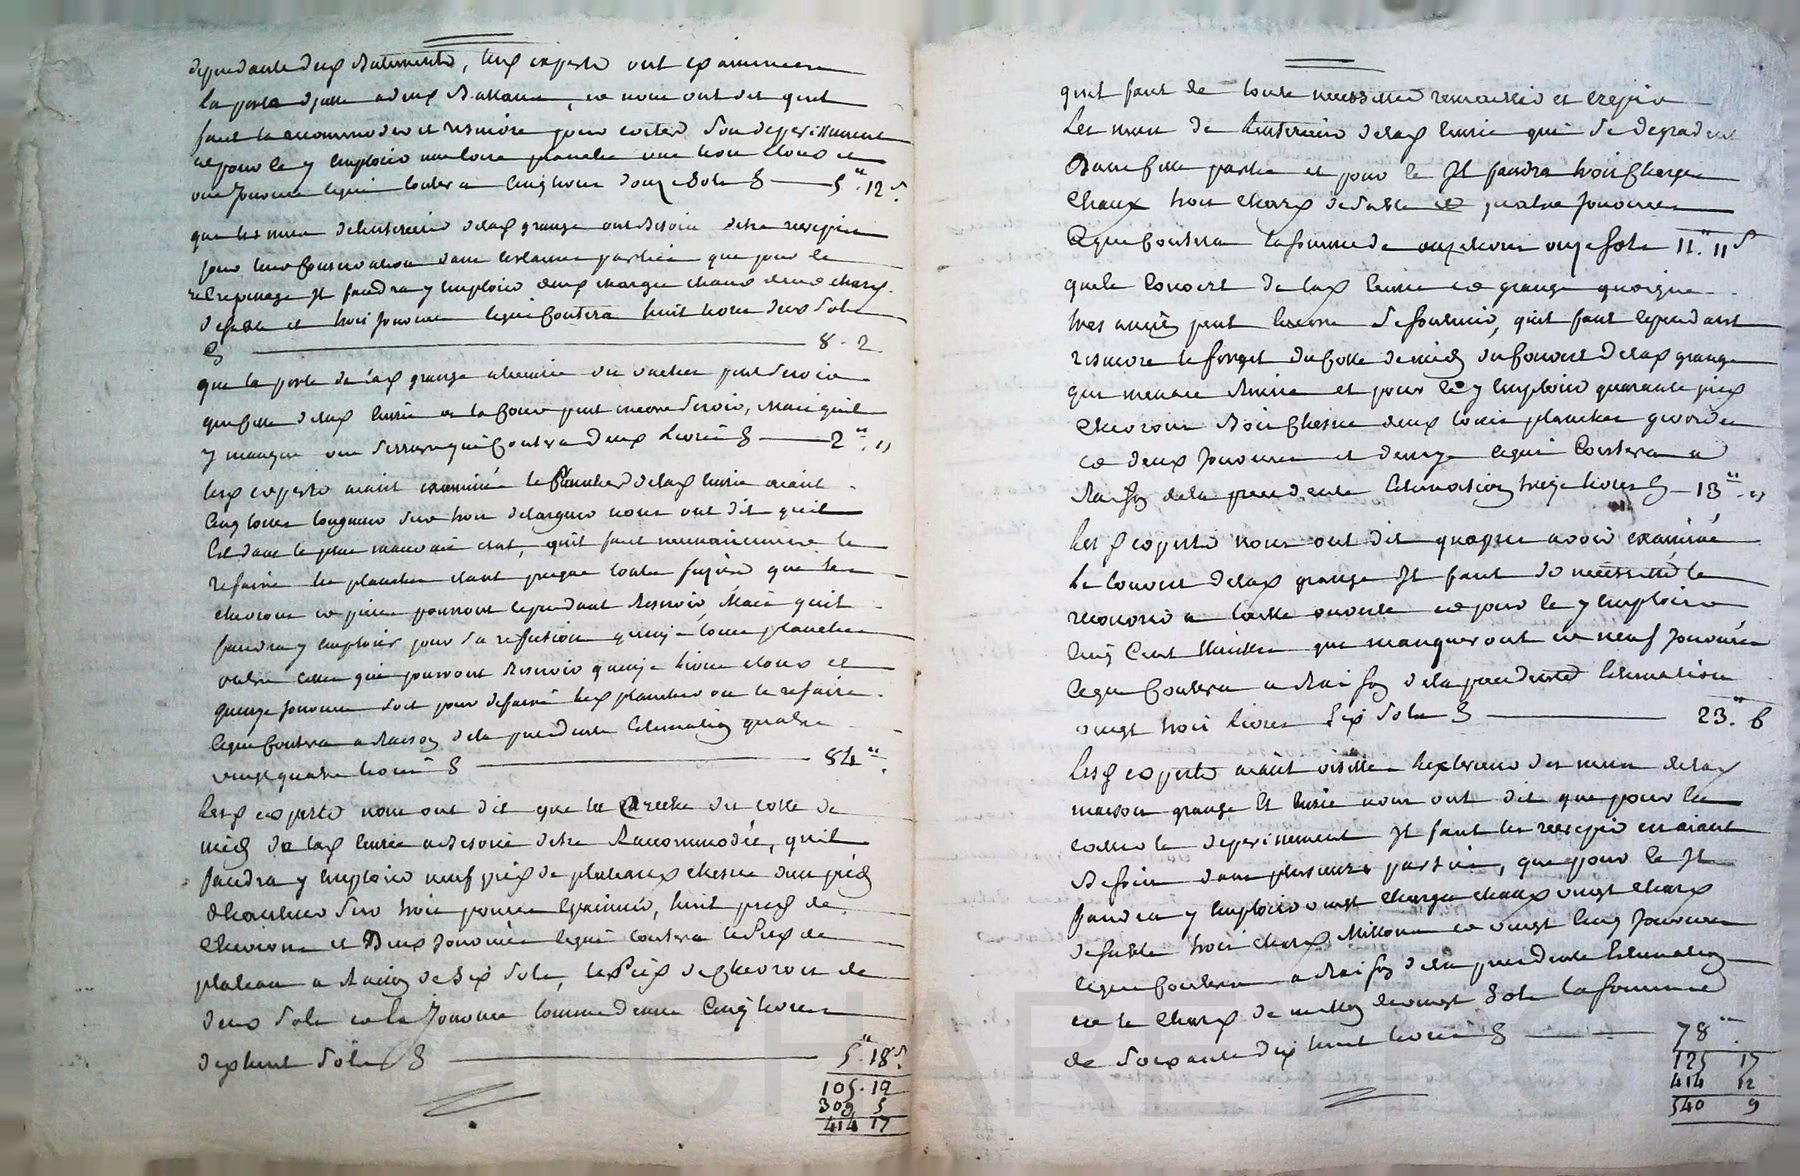 dependante desd batiments, lesd experts ont examinee
la porte dicelle a deux Battans, et nous ont dit quil
faut la accommoder et resuivre pour eviter son deperissement
et pour ce y emploier une toise planche une livre clous et
une Journee lequi coutera cinq livres douze sols § — 5" 12 s.
que les murs de linterieur delad grange ont Besoin detre recrepis
pour leur Conservation dans certaines parties que pour le
recrepissage Il faudra y emploier deux charges chaux deux chars
de sable et trois Journees lequi Coutera huit livres deux sols
§ — 8 . 2
que la porte de lad grange a lecurie ou vaches peut servir
que celle delad Ecurie a la Cour peut encore servir, Mais quil
y manque une serrure qui Coutera deux Livres § — 2" "
lesd experts aiant examiné le Plancher delad Ecurie aiant
cinq toises longueur sur trois de largeur nous ont dit quil
Est dans le plus mauvais etat, quil faut necessairement le
refaire les planches etant presque toutes pourries que les
chevrons et pieces pourront cependant Reservir, Mais quil
faudra y emploier pour sa refection quinze toises planches
outre celles qui pourront Reservir quinze livres clous et
quinze Journees soit pour defaire led plancher ou le refaire
lequi Coutera a Raison dela precedente Estimation quatre
vingt quatre livres § — 84" .
Lesd experts nous ont dit que la Creche du cotte de
midy de lad Ecurie a Besoin detre Raccommodée, quil
faudra y emploier neuf pieds de plateaux chesne dun pied
de hauteur sur trois pouces Epaisseur, huit pieds de
Chevrons et Deux Journées lequi coutera le Pied de
plateau a Raison de six sols, le Pied de chevron de
deux sols et la Journée comme dessus Cinq livres
dix huit sols § — 5" 18 s.
105 . 12
309 5
414 17
quil faut de toute necessité remaillier et crepir
Les murs de linterieur delad Ecurie qui se degradent
Dans cette partie et pour ce Il faudra trois Charges
Chaux trois chars de sable et quatre Journees
lequi Coutera la somme de onze livres onze sols 11" 11 s
que le Couvert de lad Ecurie et grange quoique
tres ancien peut Encore se soutenir, quil faut cependant
resuivre le forget du Cotte de midy du Couvert delad grange
qui menace Ruine et pour ce y emploier quarante pieds
chevrons Bois Chesne deux toises planches
et deux Journees et demye lequi Coutera a
Raison dela precedente Estimation treize livres § — 13" "
Les d experts nous ont dit quapres avoir examiné
le couvert delad grange Il faut de necessité le
recouvrir a toute ouverte et pour ce y emploier
cinq Cent thuilles que manqueront et neuf Journées
lequi Coutera a Raison dela precedente Estimation
vingt trois livres six sols § — 23" 6
Lesd experts aiant visitté lexterieur des murs delad
maison grange Et Ecurie nous ont dit que pour les
contre le deperissement Il faut les recrepir en aiant
Besoin dans plusieurs parties, que pour ce Il
faudra y emploier vingt charges chaux vingt chars
de sable trois chars Mollons et vingt cinq Journees
lequi Coutera a Raison dela precedente Estimation
et le Chars de mollon a vingt sols la somme
de soixante dix huit livres § — 78" .
125 17
414 12
540 9
CHARETRON